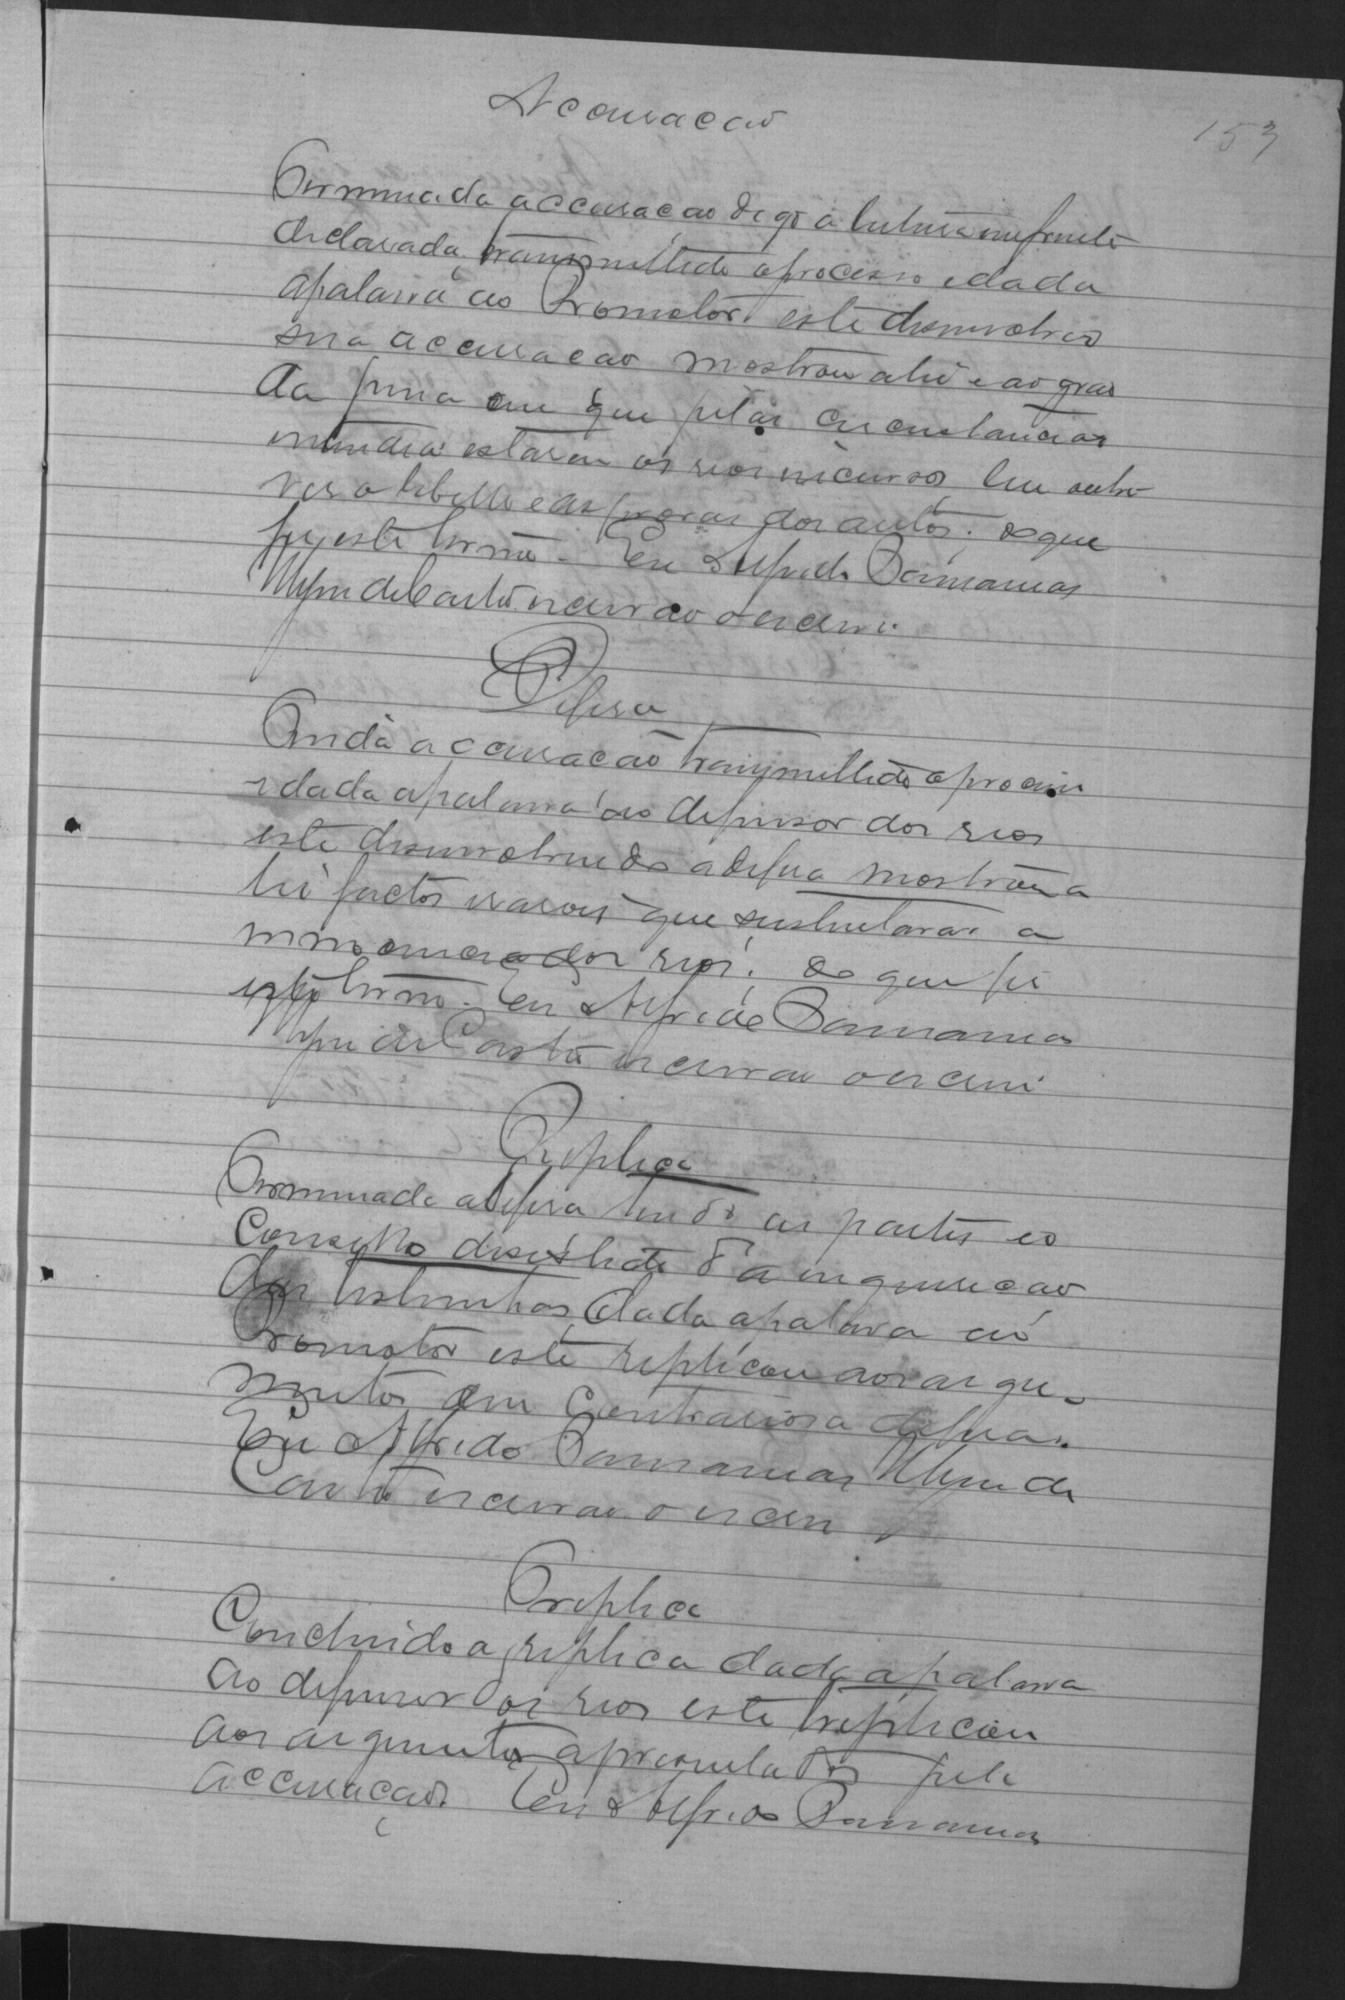 Accusação
153
Terminada a accusação digo a leitura em frente
declarada, transmittido o processo e dada
a palavra ao Promotor este desenvolveo
sua accusação mostrou a lei e ao grao
da pena em que pelas circunstancias
entendia estarem os reos incursos, leu outra
vez o libello e as provas dos autos; do que
fiz este termo. Eu Alfredo
de Castro escrivão o escrevi.
Defesa
Finda a accusação transmittido o processo
e dada a palavra ao defensor dos reos
este desenvolvendo a defesa mostrou a
lei factos e rasoes que sustentavão a
innocencia dos reos; do que fiz
este termo. Eu Alfredo
de Castro escrivão o escrevi
Replica
Terminada a defesa tendo as partes e o
Conselho desistido da inquirição
das testemunhas, dada a palavra ao
Promotor este replicou aos argu-
mentos em contrarios a defesa.
Eu Alfredo de
Castro escrivão o escrevi
Treplica
Concluido a replica dada a palavra
ao defensor dos reos este treplicou
aos argumentos apresentados pela
accusação Eu Alfredo